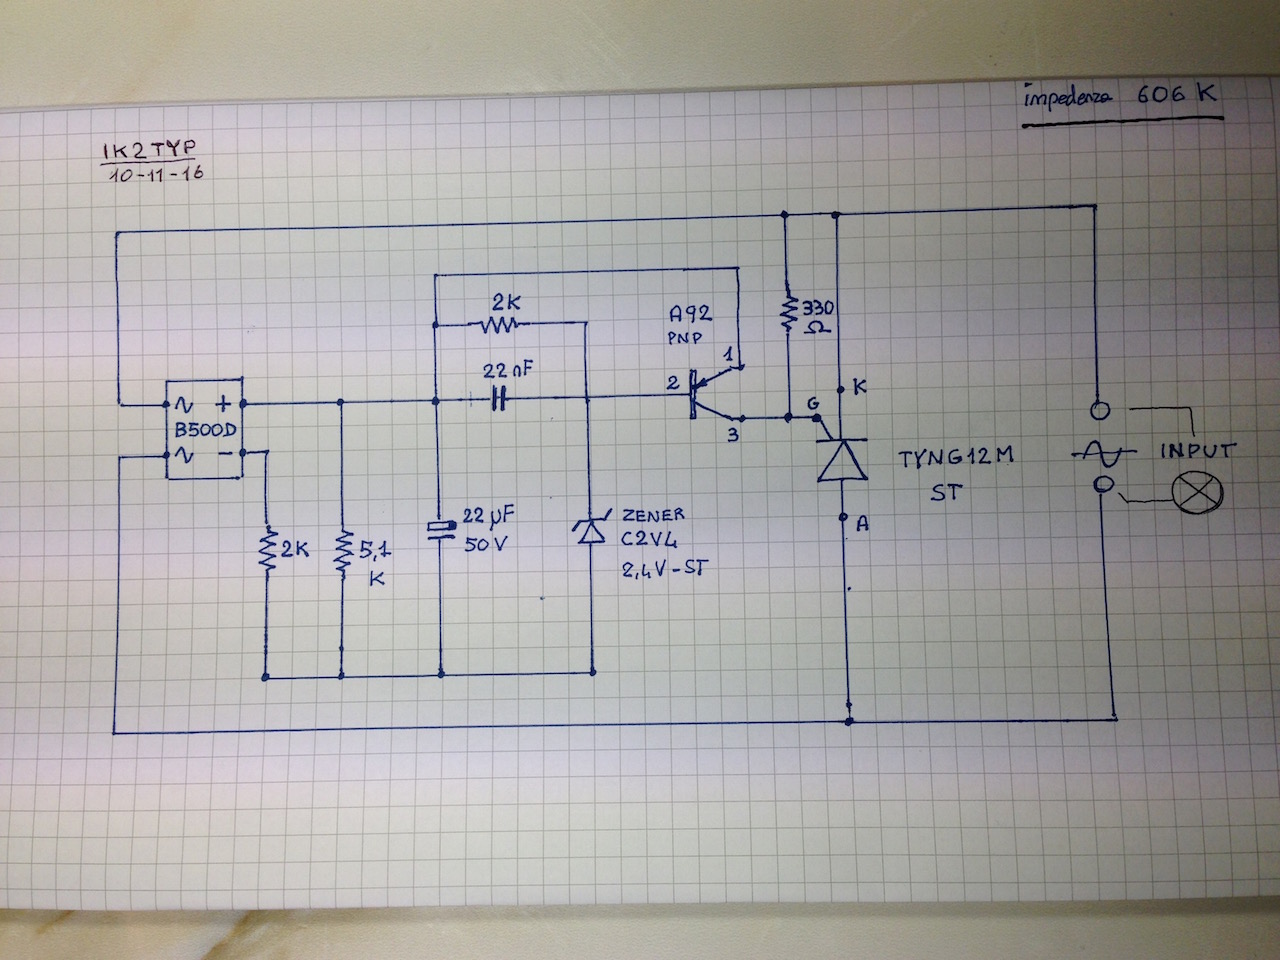 impedenza 606 K
IK2TYP
10-11-16
2K
22 nF
A92
PNP
1
2
3
330
Ω
G
K
A
+
B500D
-
2K
5,1
K
22 µF
50V
ZENER
C2V4
2,4V-ST
TYNG12M
ST
INPUT